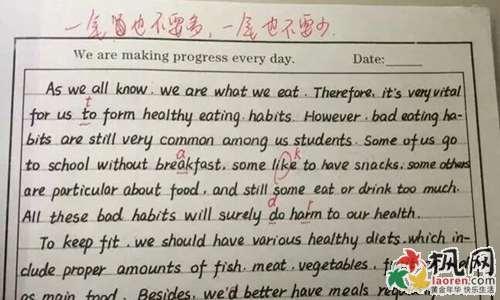 一尾也不要多，一尾也不要少.
We are making progress every day. Date:
As we all know, we are what we eat. Therefore, it's very vital
t
for us to form healthy eating habits. However, bad eating ha-
bits are still very common among us students. Some of us go
a k
to school without breakfast, some like to have snacks, some others
are particular about food, and still some eat or drink too much.
d r
All these bad habits will surely do harm to our health.
To keep fit, we should have various healthy diets, which in-
clude proper amounts of fish, meat, vegetables,
as main food. Besides, we'd better have meals
枫网
laoren.com
黄金年华·快乐生活